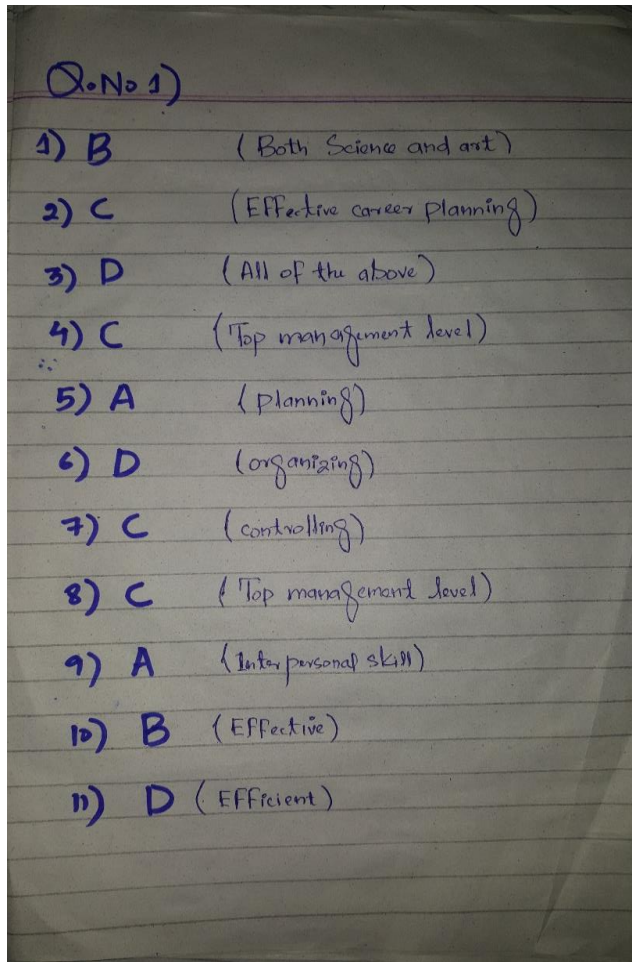 Q.No 1)
1) B (Both Science and art)
2) C (Effective career planning)
3) D (All of the above)
4) C (Top management level)
5) A (planning)
6) D (organizing)
7) C (controlling)
8) C (Top management level)
9) A (Interpersonal skill)
10) B (Effective)
11) D (Efficient)